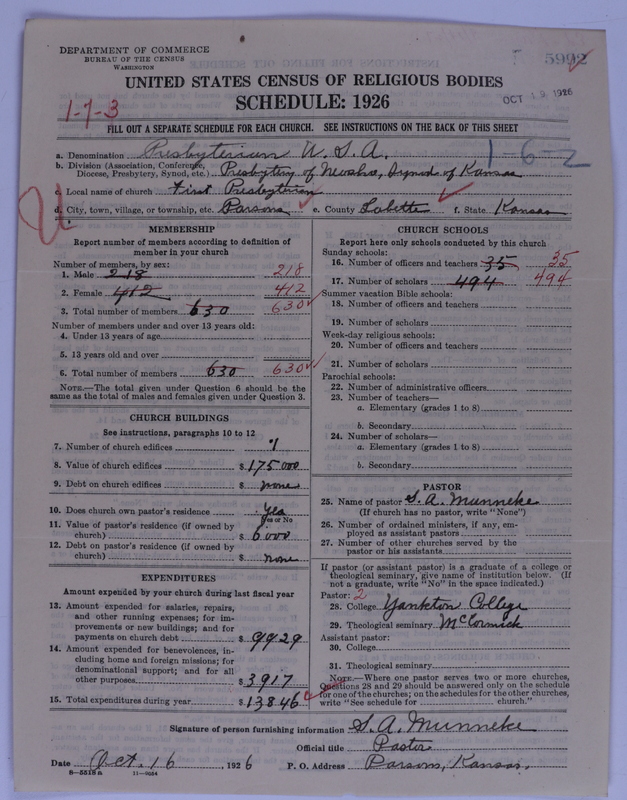 DEPARTMENT OF COMMERCE
BUREAU OF THE CENSUS
WASHINGTON
5992
UNITED STATES CENSUS OF RELIGIOUS BODIES
SCHEDULE: 1926
OCT 19 1926
1-7-3
FILL OUT A SEPARATE SCHEDULE FOR EACH CHURCH. SEE INSTRUCTIONS ON THE BACK OF THIS SHEET
a. Denomination Presbyterian U.S.A.
1-6-2
b. Division (Association, Conference, Diocese, Presbytery, Synod, etc.) Presbytery of Neosho, Synod of Kansas
c. Local name of church First Presbyterian
d. City, town, village, or township, etc. Parsons e. County Labette f. State Kansas
MEMBERSHIP
Report number of members according to definition of member in your church
Number of members by sex:
1. Male 218 218
2. Female 412 412
3. Total number of members 630 630
Number of members under and over 13 years old:
4. Under 13 years of age
5. 13 years old and over
6. Total number of members 630 630
NOTE.—The total given under Question 6 should be the same as the total of males and females given under Question 3.
CHURCH BUILDINGS
See instructions, paragraphs 10 to 12
7. Number of church edifices 1
8. Value of church edifices $175000
9. Debt on church edifices $ none
10. Does church own pastor's residence Yes
Yes or No
11. Value of pastor's residence (if owned by church) $6000
12. Debt on pastor's residence (if owned by church) $ none
EXPENDITURES
Amount expended by your church during last fiscal year
13. Amount expended for salaries, repairs, and other running expenses; for improvements or new buildings; and for payments on church debt $9929
14. Amount expended for benevolences, including home and foreign missions; for denominational support; and for all other purposes $3917
15. Total expenditures during year $13846
CHURCH SCHOOLS
Report here only schools conducted by this church
Sunday schools:
16. Number of officers and teachers 35 35
17. Number of scholars 494 494
Summer vacation Bible schools:
18. Number of officers and teachers
19. Number of scholars
Week-day religious schools:
20. Number of officers and teachers
21. Number of scholars
Parochial schools:
22. Number of administrative officers
23. Number of teachers—
a. Elementary (grades 1 to 8)
b. Secondary
24. Number of scholars—
a. Elementary (grades 1 to 8)
b. Secondary
PASTOR
25. Name of pastor S. A. Munneke
(If church has no pastor, write "None")
26. Number of ordained ministers, if any, employed as assistant pastors
27. Number of other churches served by the pastor or his assistants
If pastor (or assistant pastor) is a graduate of a college or theological seminary, give name of institution below. (If not a graduate, write "No" in the space indicated.)
Pastor: 2
28. College Yankton College
29. Theological seminary McCormick
Assistant pastor:
30. College
31. Theological seminary
NOTE.—Where one pastor serves two or more churches, Questions 28 and 29 should be answered only on the schedule for one of the churches; on the schedules for the other churches, write "See schedule for church."
Signature of person furnishing information S. A. Munneke
Official title Pastor
Date Oct. 16, 1926 P. O. Address Parsons, Kansas.
8-5518 a 11-9684